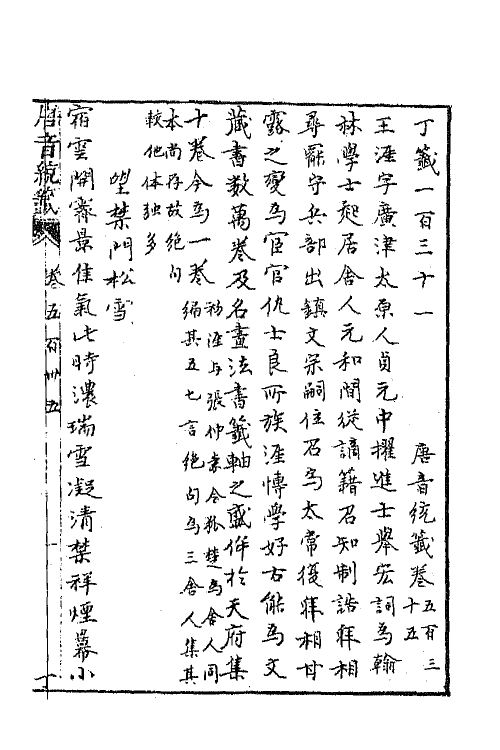 丁籤一百三十一　唐音統籤卷五百三十五
王涯字廣津太原人貞元中擢進士舉宏詞爲翰
林學士起居舍人元和間從謫籍召知制誥拜相
尋罷守兵部出鎮文宗嗣位召爲太常復拜相甘
露之變爲宦官仇士良所族涯博學好古能爲文
藏書数萬卷及名畫法書籤軸之盛侔於天府集
十卷今爲一卷初涯与張仲素令狐楚爲舍人同
編其五七言絶句爲三舍人集其
本尚存故絶句
較他体独多
望禁門松雪
宿雲開霽景佳氣此時濃瑞雪凝清禁祥煙羃小
唐音統籤　卷五百卅五　一